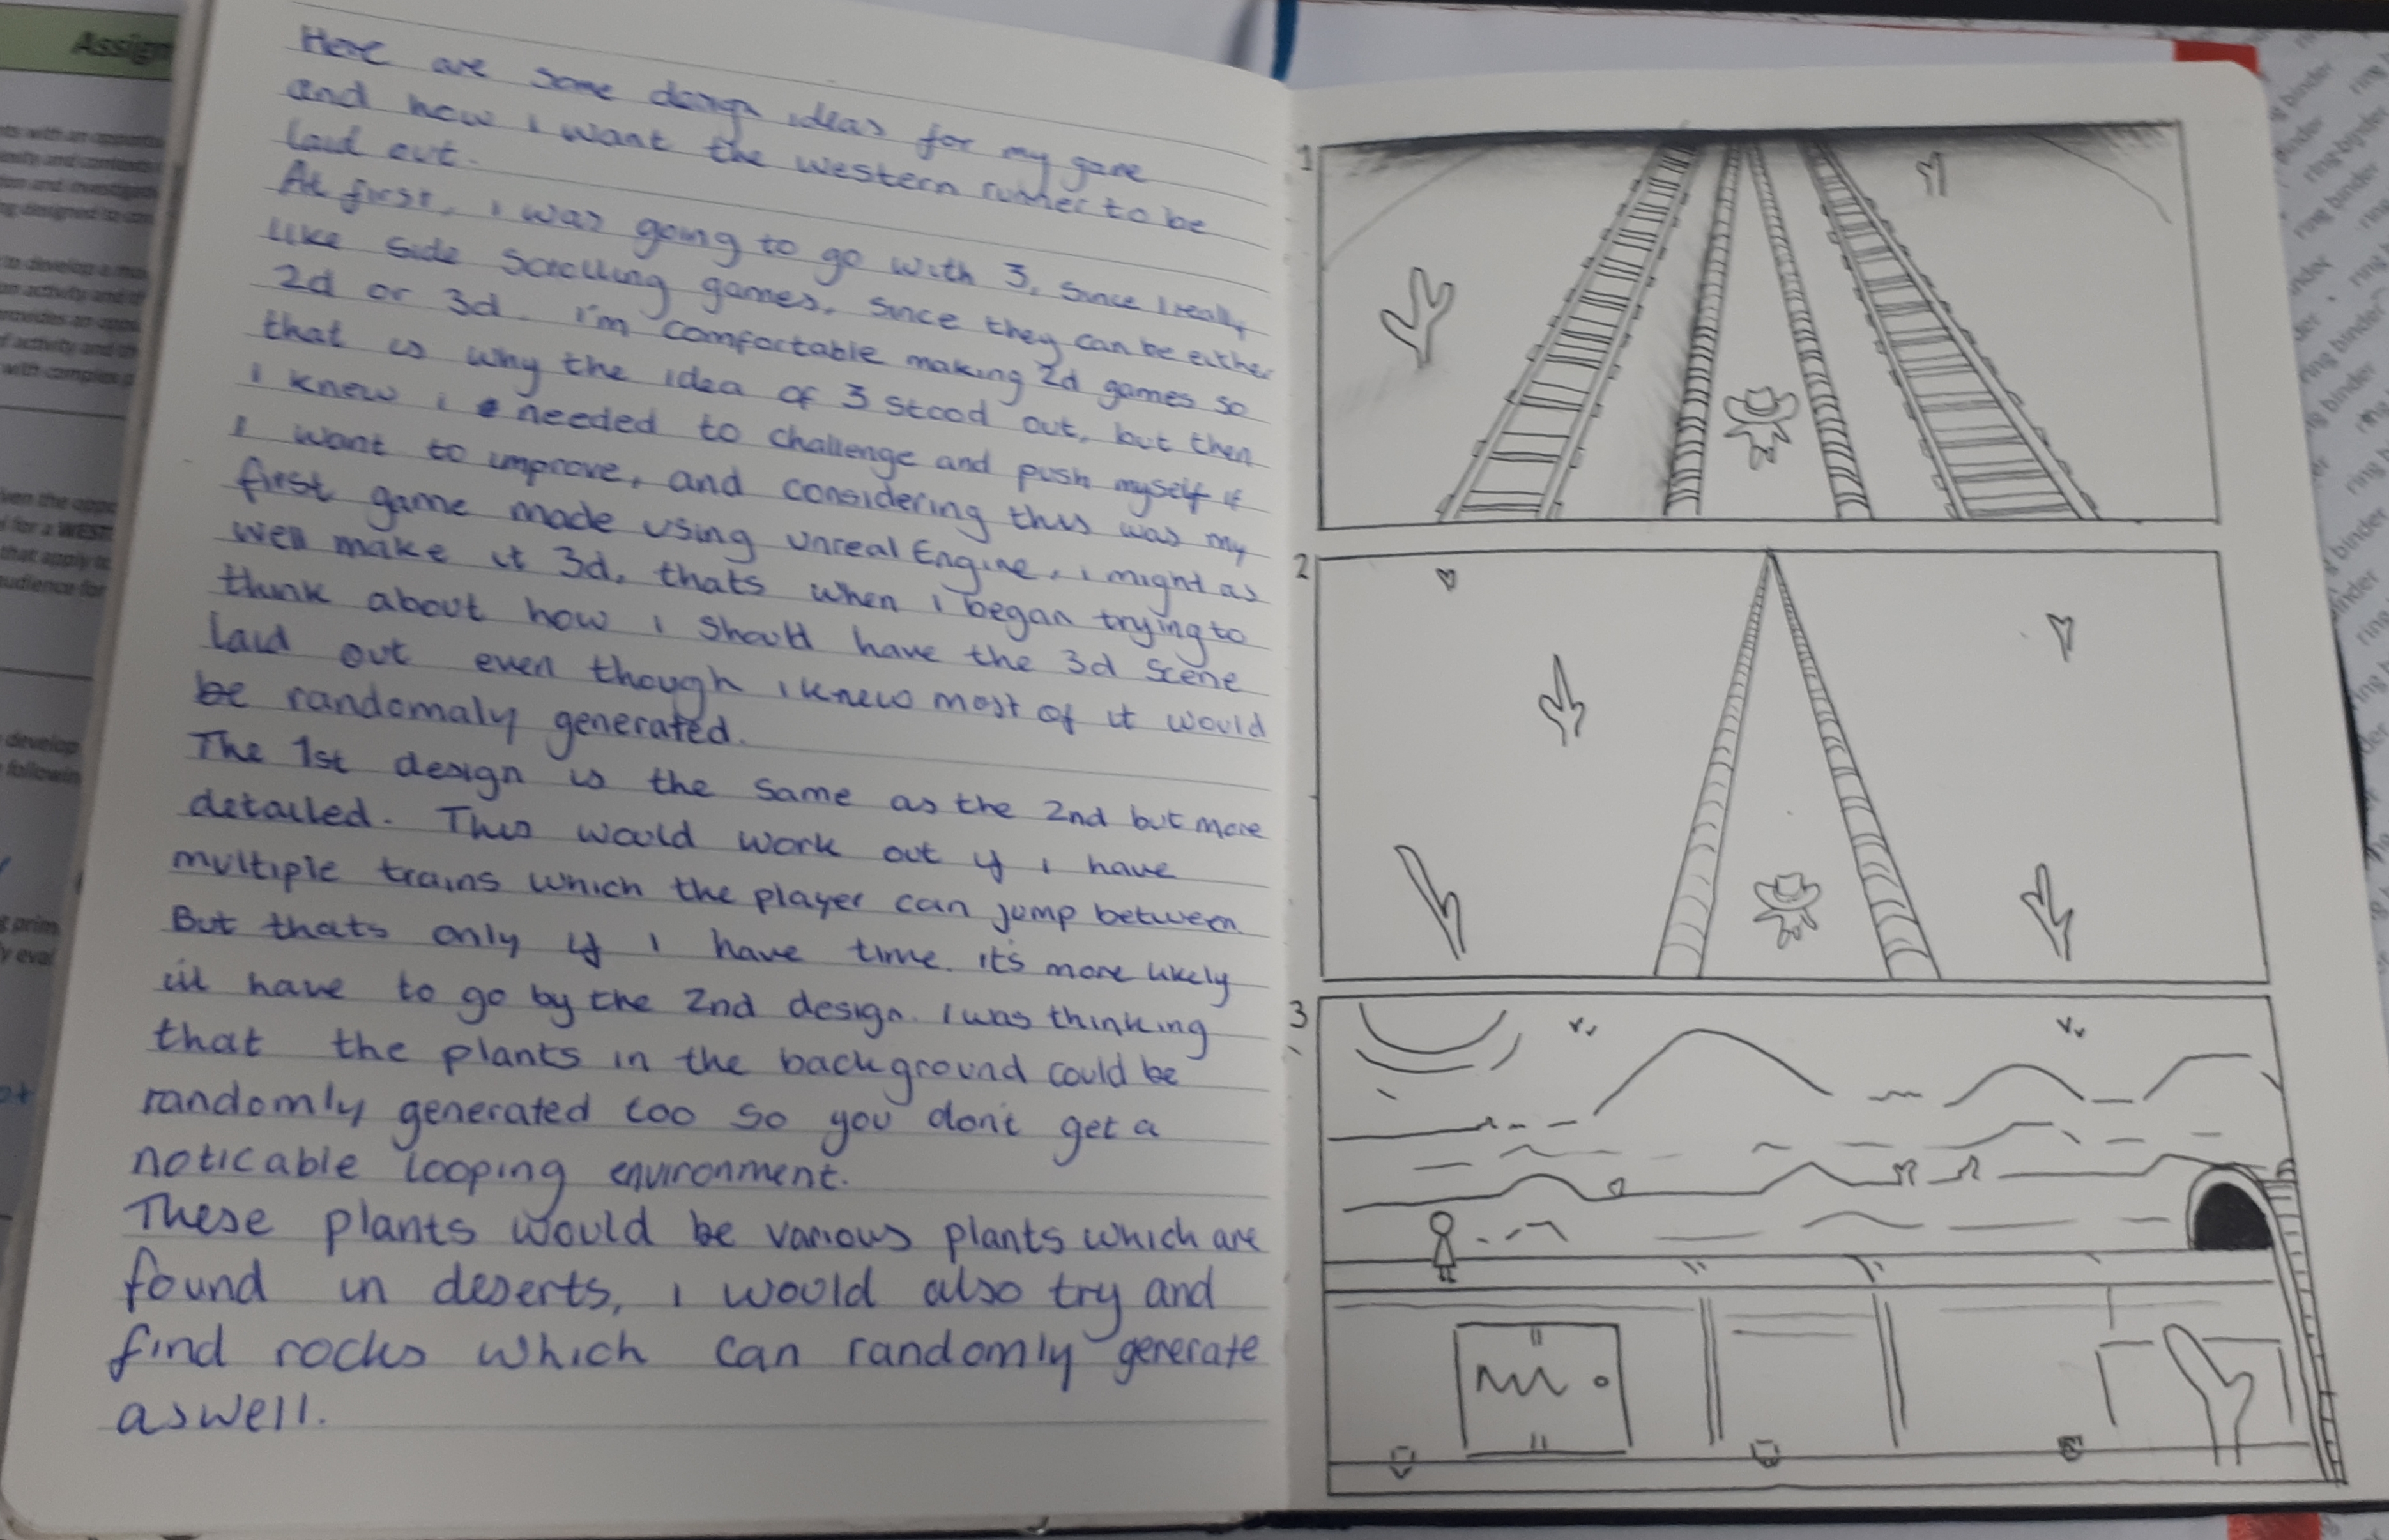 Assign
Here are some design ideas for my game
and how i want the western runner to be
laid out.
At first, i was going to go with 3, since I really
like side scrolling games, since they can be either
2d or 3d. I'm comfortable making 2d games so
that is why the idea of 3 stood out, but then
i knew i needed to challenge and push myself if
I want to improve, and considering this was my
first game made using unreal Engine, i might as
well make it 3d, thats when i began trying to
think about how i should have the 3d scene
laid out even though i knew most of it would
be randomaly generated.
The 1st design is the same as the 2nd but more
detailed. This would work out if i have
multiple trains which the player can jump between
But thats only if I have time. it's more likely
ill have to go by the 2nd design. I was thinking
that the plants in the background could be
randomly generated too so you don't get a
noticable looping environment.
These plants would be various plants which are
found in deserts, i would also try and
find rocks which can randomly generate
aswell.
1
2
3
ring binder